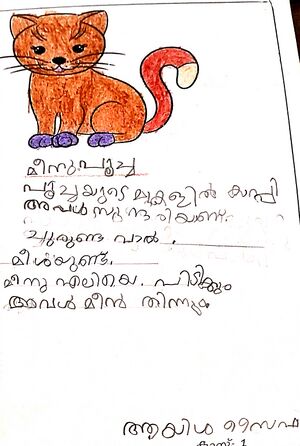 മീനുപൂച്ച
പൂച്ചയുടെ മുകളിൽ കാപ്പി
അവൾ സുന്ദരിയണ്.
ചുരുണ്ട വാൽ.
മീശയുണ്ട്.
മീനു എലിയെ. പിടിക്കും
അവൾ മീൻ തിന്നും
ആയിശ സൈഫ
ക്ലാസ്: 1